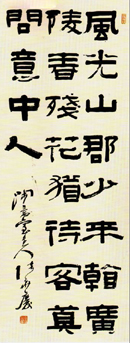 風光山郡少來看廣
陵春殘花猶待客莫
問意中人